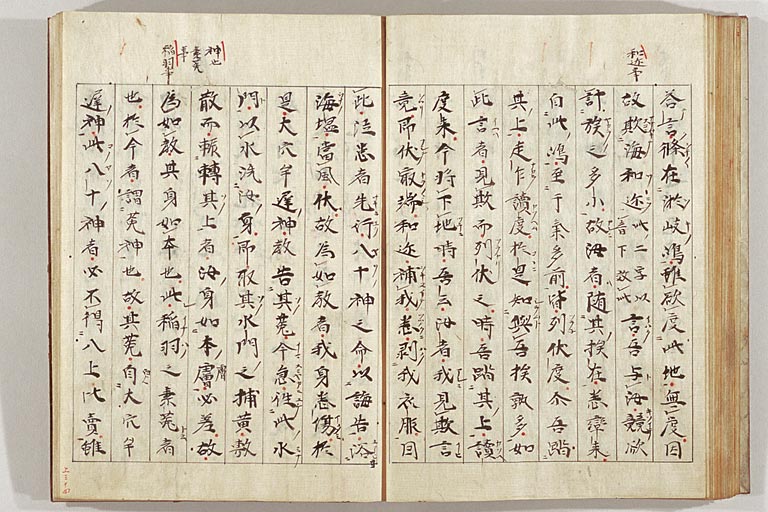 和迩事
答言僕在淤岐嶋雖欲度此地無度因
故欺海和迩此二字以音下效此言吾与汝競欲
計族之多小故汝者随其族在悉率来
自此嶋至于氣多前皆列伏度尒吾蹈
其上走乍讀度於是知與吾族孰多如
此言者見欺而列伏之時吾蹈其上讀
度来今将下地時吾云汝者我見欺言
竟即伏最端和迩捕我悉剥我衣服因
此泣患者先行八十神之命以誨告浴
海塩當風伏故為如教者我身悉傷於
是大穴牟遅神教告其菟今急徃此水
門以水洗汝身即取其水門之捕黄敷
散而輾轉其上者汝身如本膚必差故
為如教其身如本也此稲羽之素菟者
也於今者謂菟神也故其菟白大穴牟
遅神此八十神者必不得八上比賣雖
神也
素菟
事
稲羽事